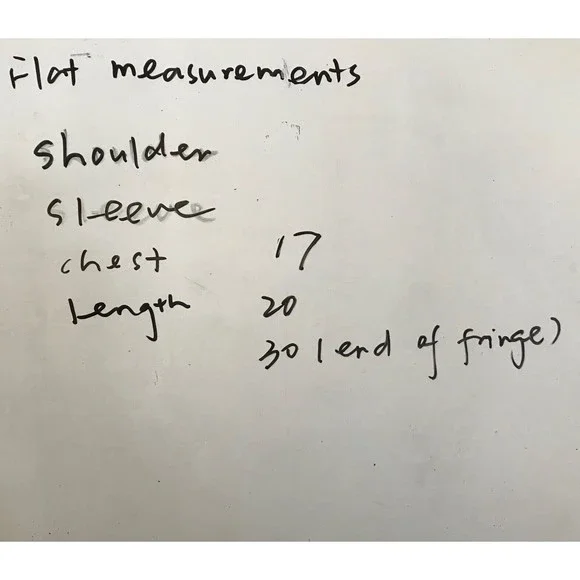 Flat measurements
shoulder
sleeve
chest 17
Length 20
30 (end of fringe)